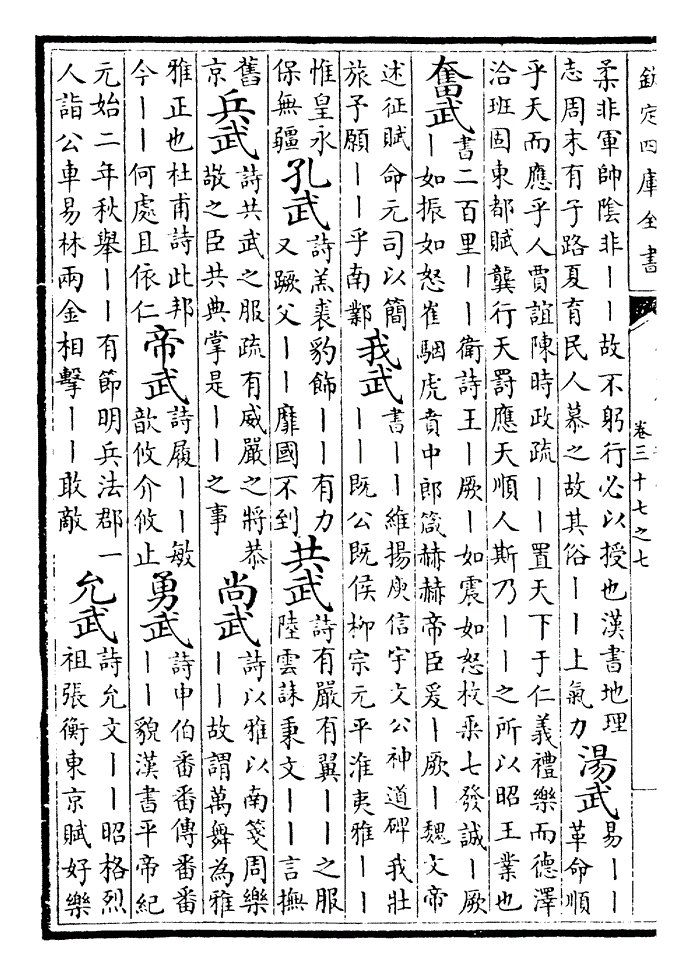 欽定四庫全書
卷三十七之七
柔非軍帥陰非丨丨故不躬行必以授也漢書地理
志周末有子路夏育民人慕之故其俗丨丨上氣力
湯武
易丨丨
革命順
乎天而應乎人賈誼陳時政疏丨丨置天下于仁義禮樂而德澤
洽班固東都賦龔行天罰應天順人斯乃丨丨之所以昭王業也
奮武
書二百里丨丨衛詩王丨厥丨如震如怒枚乘七發誠丨厥
丨如振如怒崔駰虎賁中郎箴赫赫帝臣爰丨厥丨魏文帝
述征賦命元司以簡
旅予願丨丨乎南鄴
我武
書丨丨維揚庾信宇文公神道碑我壯
丨丨既公既侯柳宗元平淮夷雅丨丨
惟皇永
保無疆
孔武
詩羔裘豹飾丨丨有力
又蹶父丨丨靡國不到
共武
詩有嚴有翼丨丨之服
陸雲誄秉文丨丨言撫
舊
京
兵武
詩共武之服疏有威嚴之將恭
敬之臣共典掌是丨丨之事
尚武
詩以雅以南箋周樂
丨丨故謂萬舞為雅
雅正也杜甫詩此邦
今丨丨何處且依仁
帝武
詩履丨丨敏
歆攸介攸止
勇武
詩申伯番番傳番番
丨丨貌漢書平帝紀
元始二年秋舉丨丨有節明兵法郡一
人詣公車易林兩金相擊丨丨敢敵
允武
詩允文丨丨昭格烈
祖張衡東京賦好樂